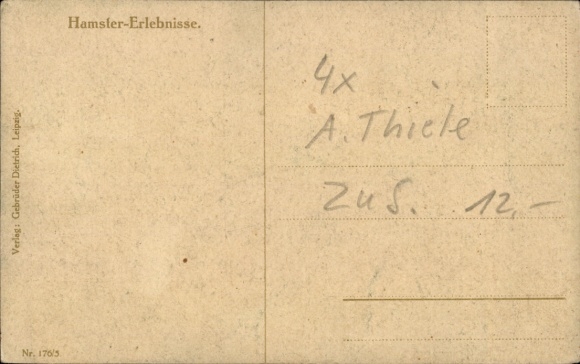 Hamster-Erlebnisse.
Verlag: Gebrüder Dietrich, Leipzig.
Nr. 176/5
4x
A. Thiele
Zus. 12,-